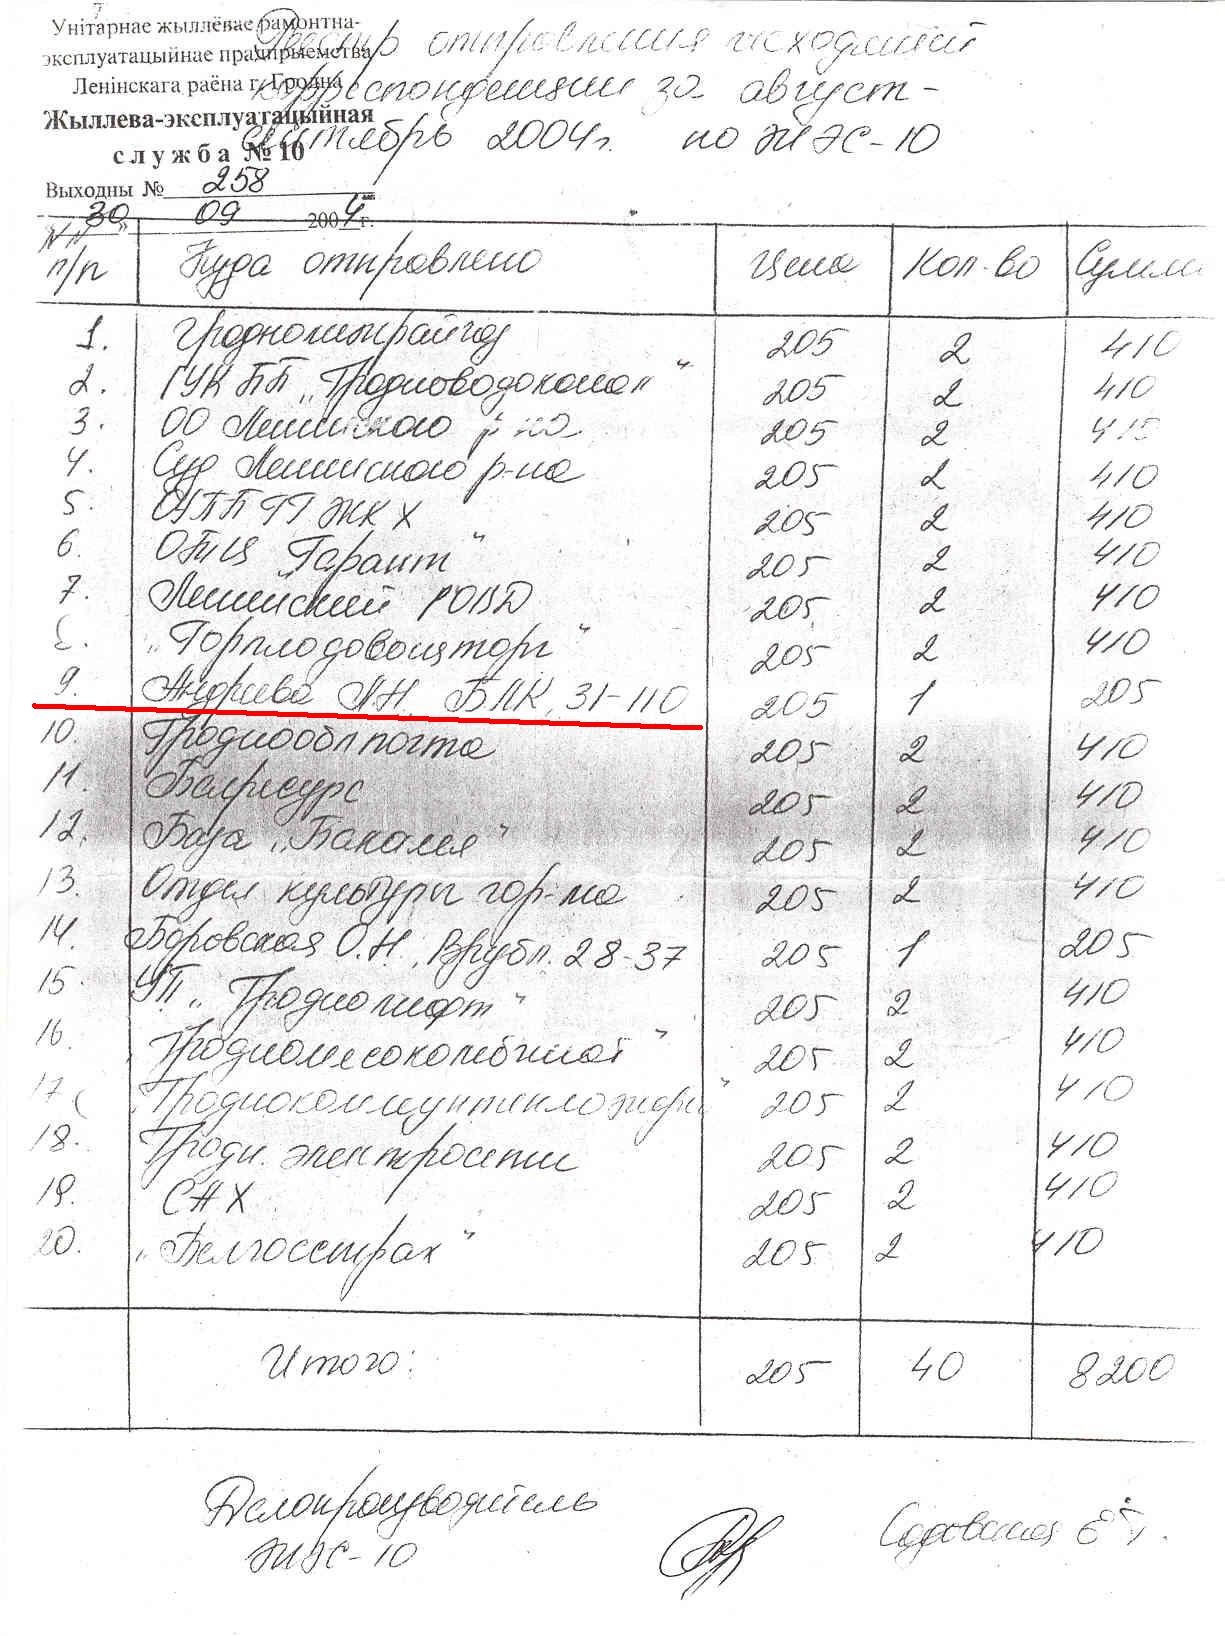 Унітарнае жыллёвае рамонтна-
эксплуатацыйнае прадпрыемства
Ленінскага раёна г. Гродна
Жыллева-эксплуатацыйная
служба №10
Выходны № 258
30 09 2004г.
Реестр отправления исходящей
корреспонденции за август-
сентябрь 2004г. по ЖЭС-10
NN п/п Куда отправлено Цена Кол-во Сумма
1. Гроднометрайгаз 205 2 410
2. ГУКПП „Гродноводоканал" 205 2 410
3. ОО Ленинского р-на 205 2 410
4. Суд Ленинского р-на 205 2 410
5. ЖКХ 205 2 410
6. „Гарант" 205 2 410
7. Ленинский РОВД 205 2 410
8. „Горплодовощторг" 205 2 410
9. Андреева Л.Н. БЛК, 31-110 205 1 205
10. Гроднооблпочта 205 2 410
11. Белресурс 205 2 410
12. База „Бакалея" 205 2 410
13. Отдел культуры гор-ка 205 2 410
14. Боровская О.Н., Врубл. 28-37 205 1 205
15. УП „Гроднолифт" 205 2 410
16. „Гродномясокомбинат" 205 2 410
17. „Гроднокоммунтеплоэнерго" 205 2 410
18. Гродн. электросети 205 2 410
19. САХ 205 2 410
20. „Белгосстрах" 205 2 410
Итого: 205 40 8200
Делопроизводитель
ЖЭС-10
Садовская Е.